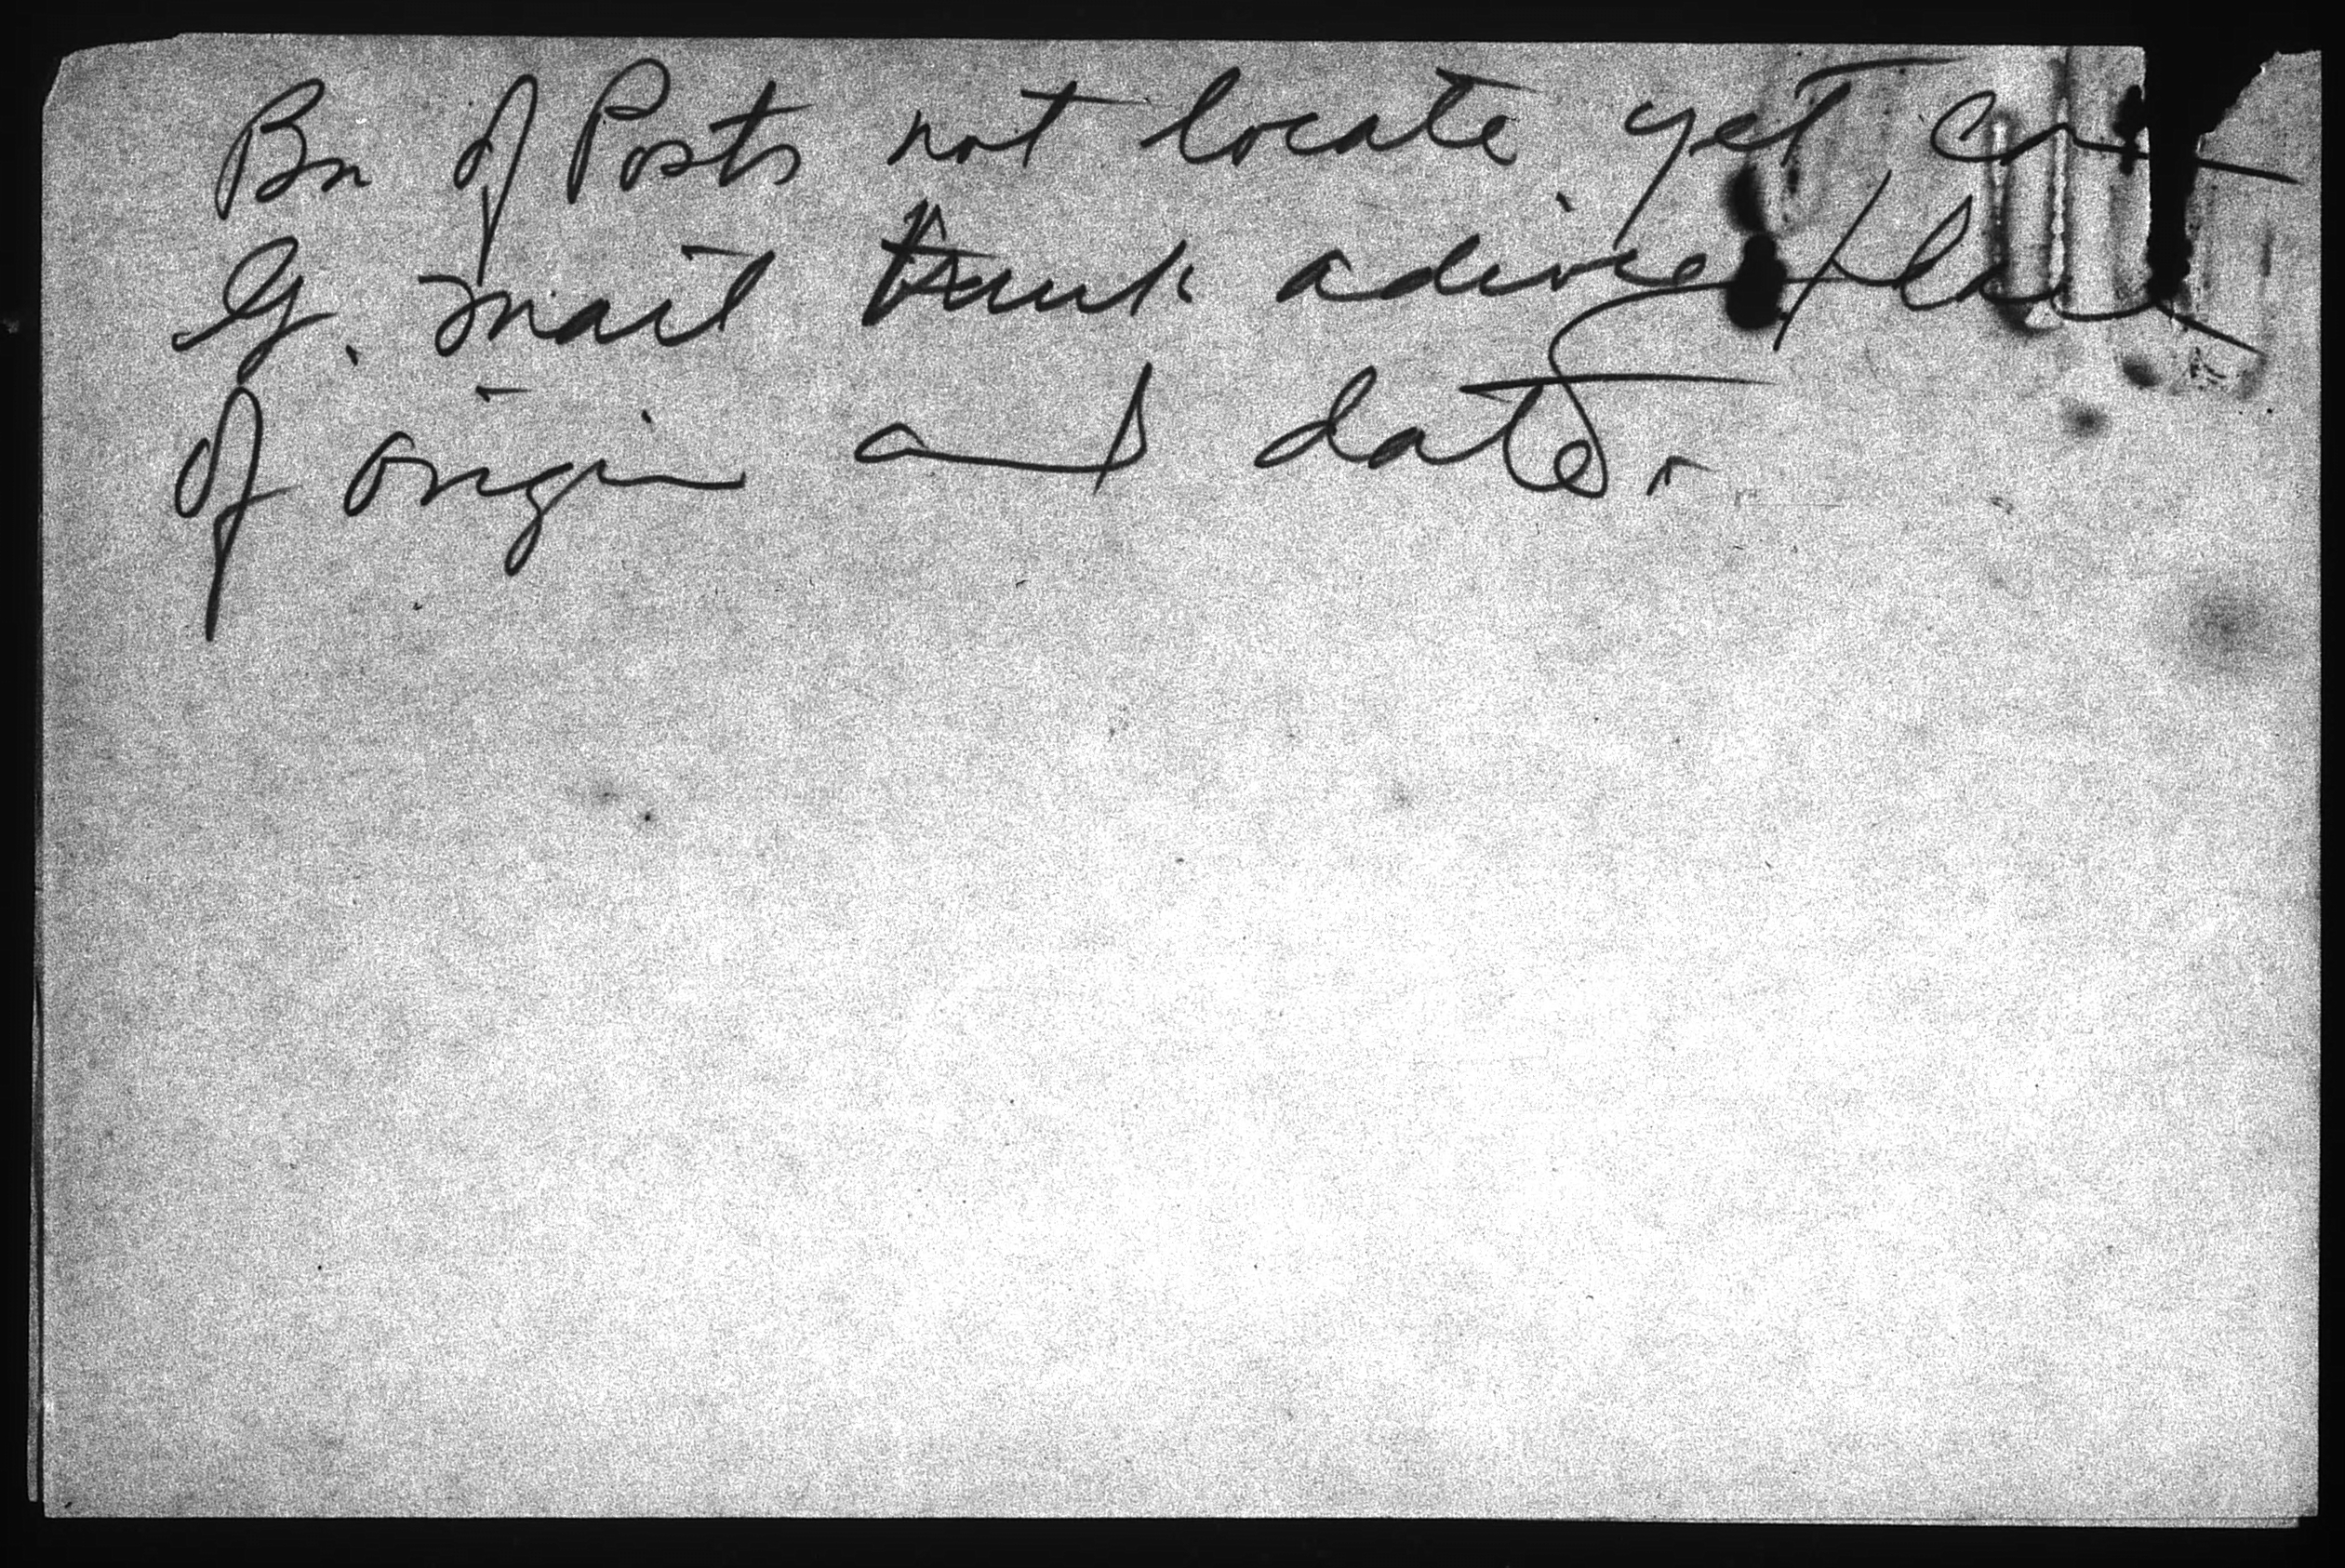 Bn of Posts not locate yet
G. mail trunk advice place
of origin and date.